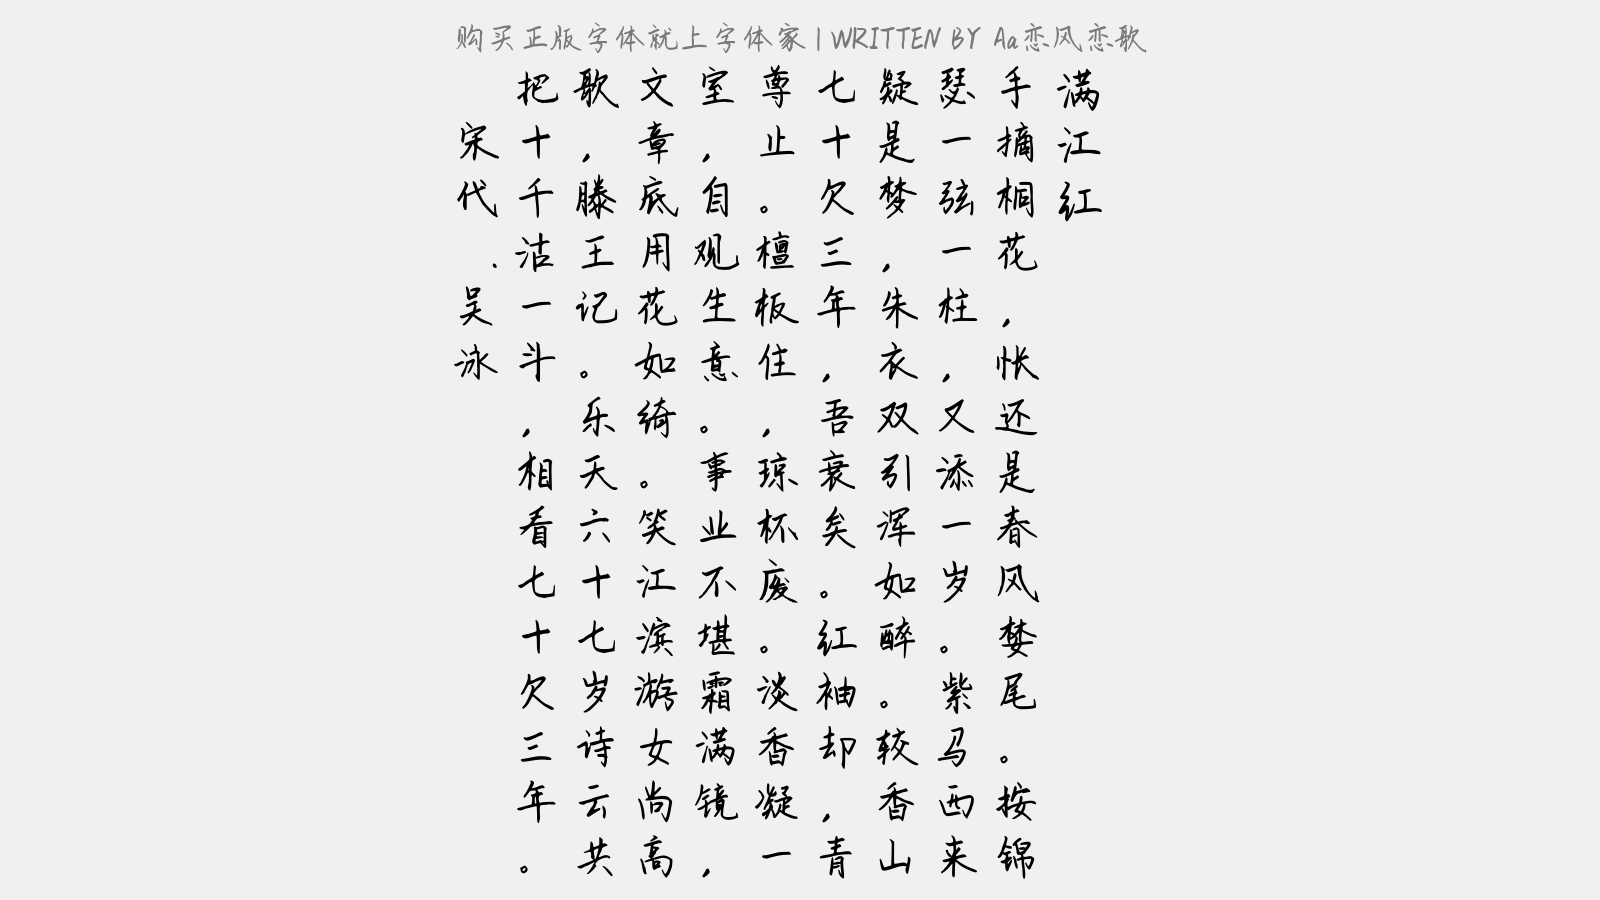 购买正版字体就上字体家 | WRITTEN BY Aa恋风恋歌
满江红
手摘桐花，怅还是春风婪尾。按锦
瑟一弦一柱，又添一岁。紫马西来
疑是梦，朱衣双引浑如醉。较香山
七十欠三年，吾衰矣。红袖却，青
尊止。檀板住，琼杯废。淡香凝一
室，自观生意。事业不堪霜满镜，
文章底用花如绮。笑江滨游女尚高
歌，滕王记。乐天六十七岁诗云共
把十千沽一斗，相看七十欠三年。
宋代.吴泳